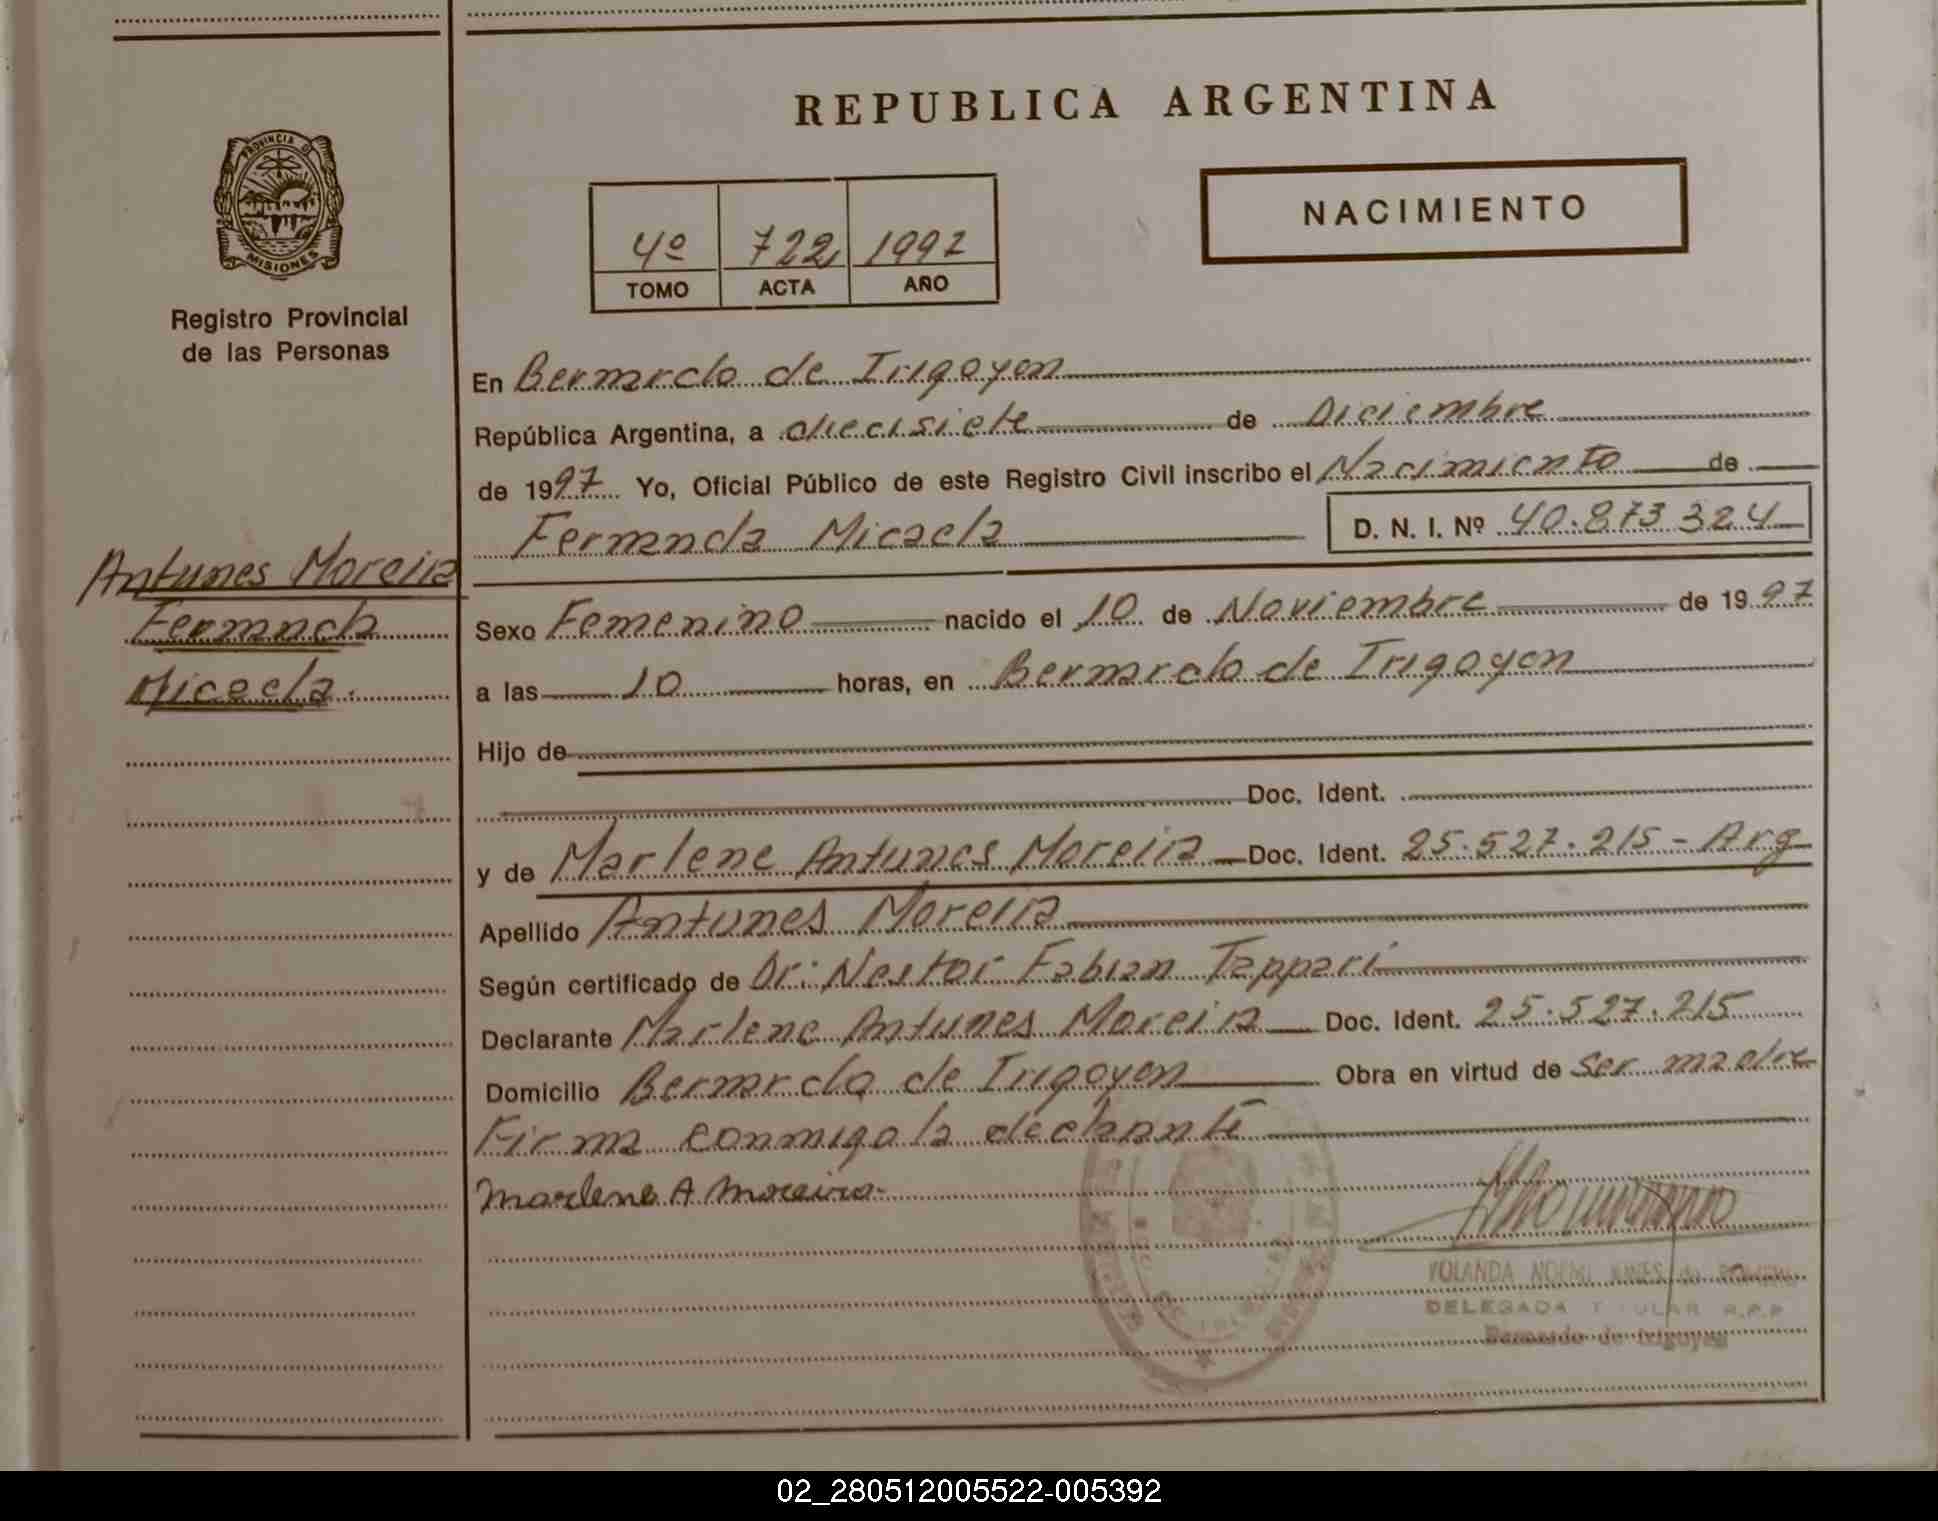 REPUBLICA ARGENTINA
PROVINCIA DE
MISIONES
Registro Provincial
de las Personas
4º 722 1997
TOMO ACTA AÑO
NACIMIENTO
En Bernardo de Irigoyen
República Argentina, a diecisiete de Diciembre
de 1997 Yo, Oficial Público de este Registro Civil inscribo el Nacimiento de
Fernanda Micaela D. N. I. Nº 40.873.324
Antunes Moreira
Fernanda
Micaela.
Sexo Femenino nacido el 10 de Noviembre de 1997
a las 10 horas, en Bernardo de Irigoyen
Hijo de
Doc. Ident.
y de Marlene Antunes Moreira Doc. Ident. 25.527.215 - Arg
Apellido Antunes Moreira
Según certificado de Dr: Nestor Fabian Tappari
Declarante Marlene Antunes Moreira Doc. Ident. 25.527.215
Domicilio Bernardo de Irigoyen Obra en virtud de ser madre
Firma conmigo la declarante
Marlene A Moreira
YOLANDA NOEMI
DELEGADA TITULAR R.P.P
Bernardo de Irigoyen
02_280512005522-005392